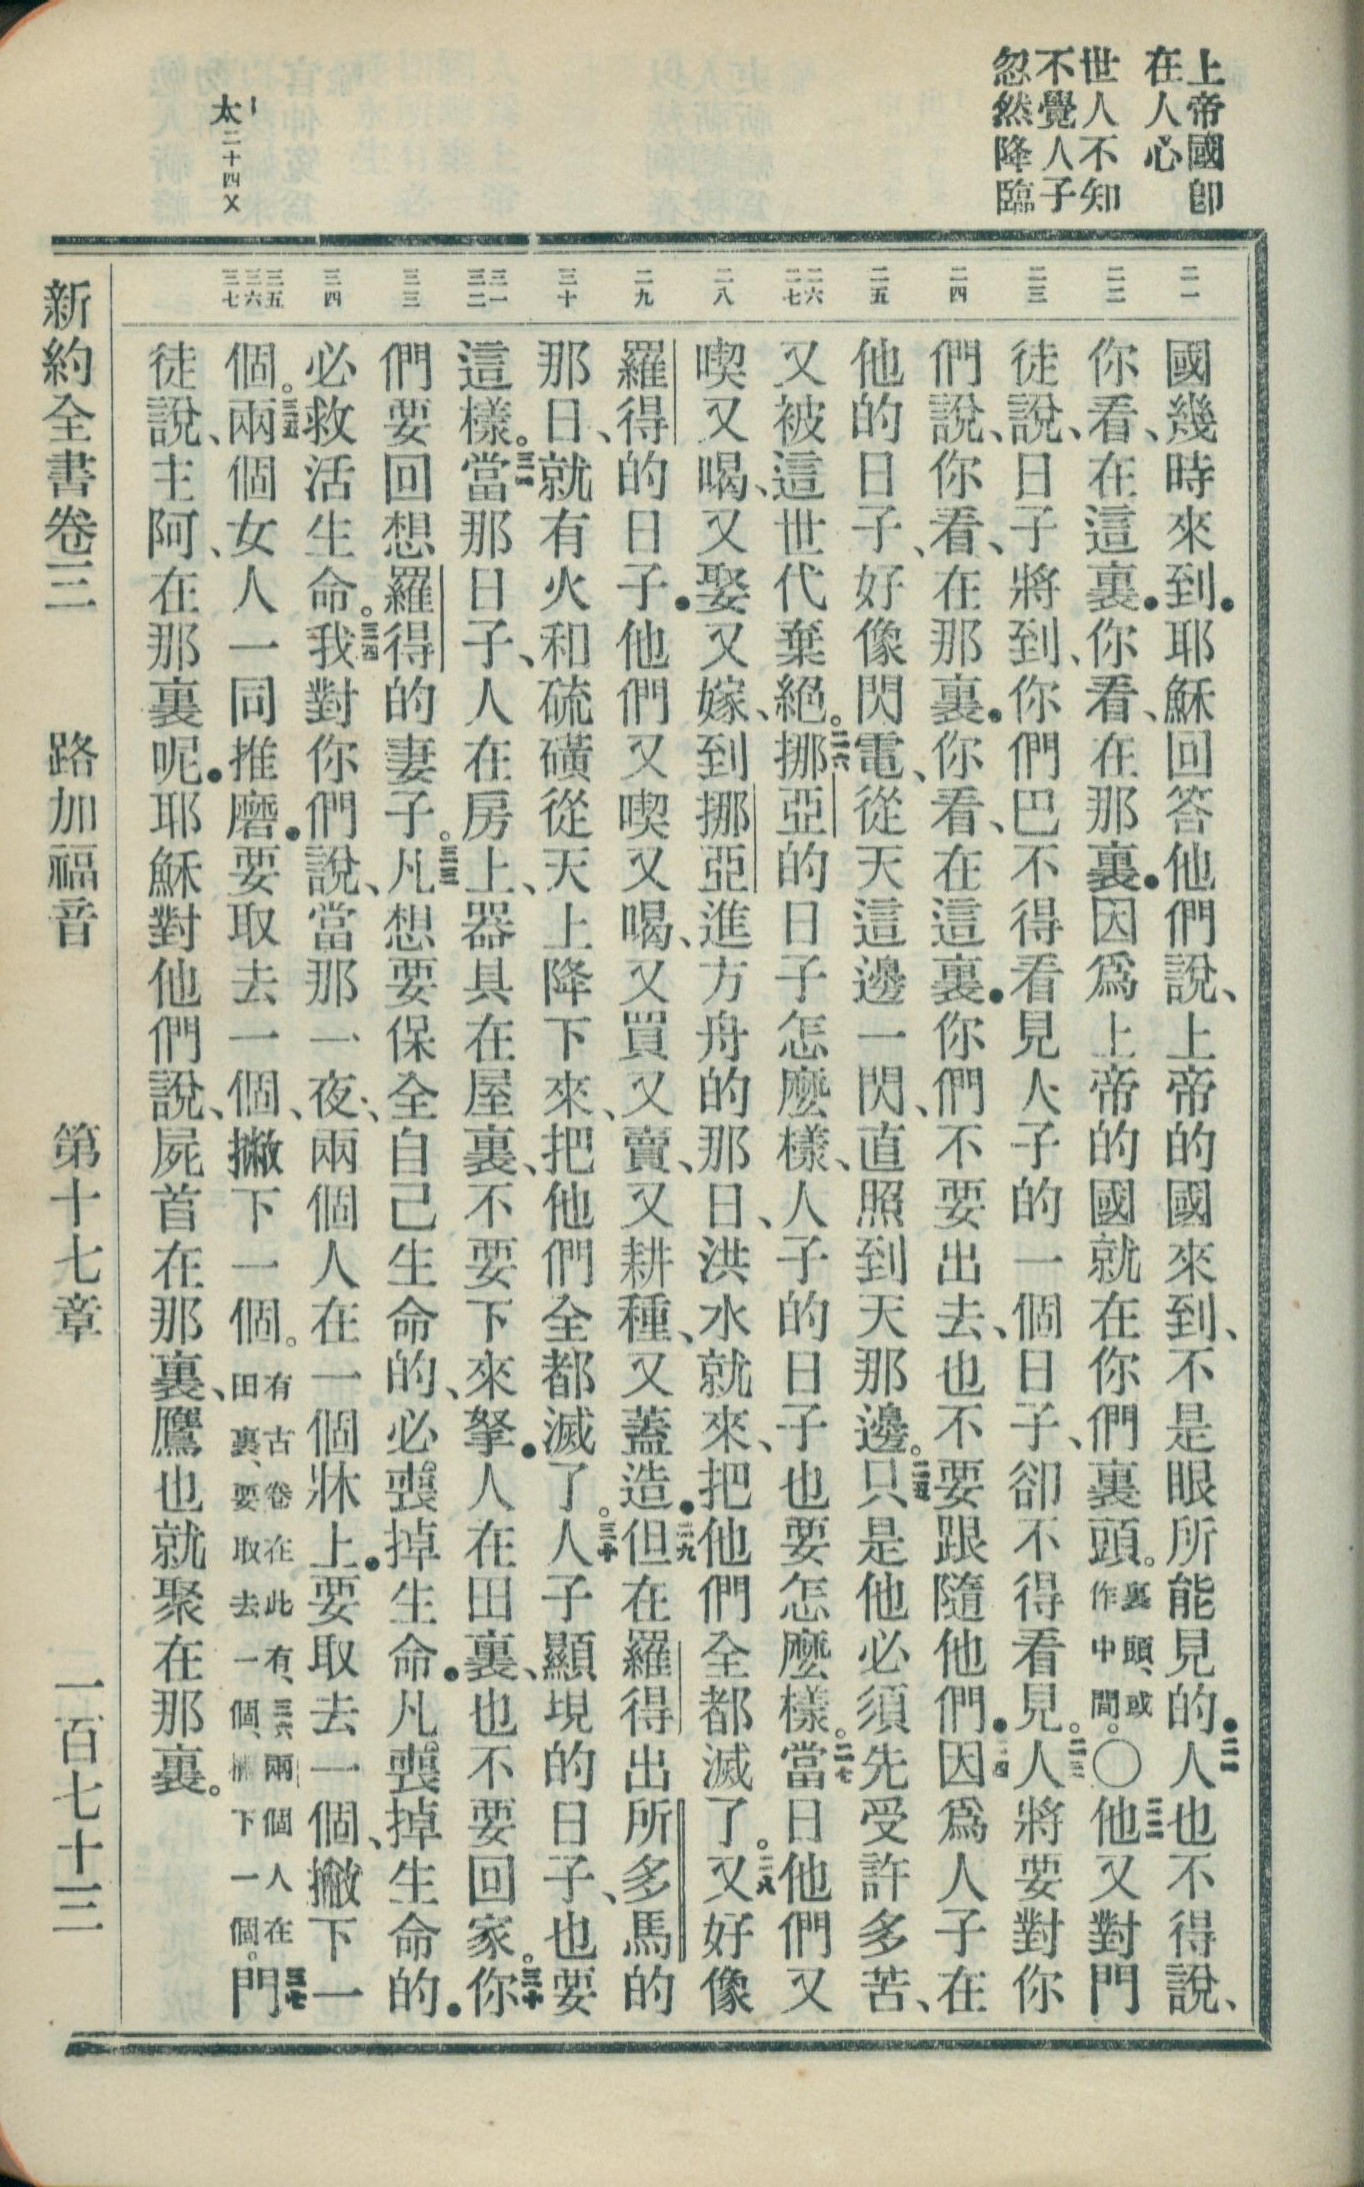 上帝國卽
在人心
世人不知
不覺人子
忽然降臨
太二十四乂
二一
二二
二三
二四
二五
二六
二七
二八
二九
三十
三一
三二
三三
三四
三五
三六
三七
國幾時來到●耶穌回答他們說、上帝的國來到、不是眼所能見的●二一人也不得說、
你看、在這裏●你看、在那裏●因爲上帝的國就在你們裏頭。裏頭、或作中間。〇二二他又對門
徒說、日子將到、你們巴不得看見人子的一個日子、卻不得看見。二三人將要對你
們說、你看、在那裏●你看、在這裏●你們不要出去、也不要跟隨他們●二四因爲人子在
他的日子、好像閃電、從天這邊一閃、直照到天那邊。二五只是他必須先受許多苦、
又被這世代棄絕。二六挪亞的日子怎麼樣、人子的日子也要怎麼樣。二七當日他們又
喫又喝、又娶又嫁、到挪亞進方舟的那日、洪水就來、把他們全都滅了。二八又好像
羅得的日子●他們又喫又喝、又買又賣、又耕種、又蓋造●二九但在羅得出所多馬的
那日、就有火和硫磺從天上降下來、把他們全都滅了。三十人子顯現的日子、也要
這樣。三一當那日子、人在房上、器具在屋裏、不要下來拏●人在田裏、也不要回家。三十你
們要回想羅得的妻子。三三凡想要保全自己生命的、必喪掉生命●凡喪掉生命的●
必救活生命。三四我對你們說、當那一夜、兩個人在一個牀上●要取去一個、撇下一
個。三五兩個女人一同推磨●要取去一個、撇下一個。有古卷在此有、三六兩個人在田裏、要取去一個、撇下一個。三七門
徒說、主阿、在那裏呢●耶穌對他們說、屍首在那裏、鷹也就聚在那裏。
新約全書卷三　路加福音　第十七章　一百七十三